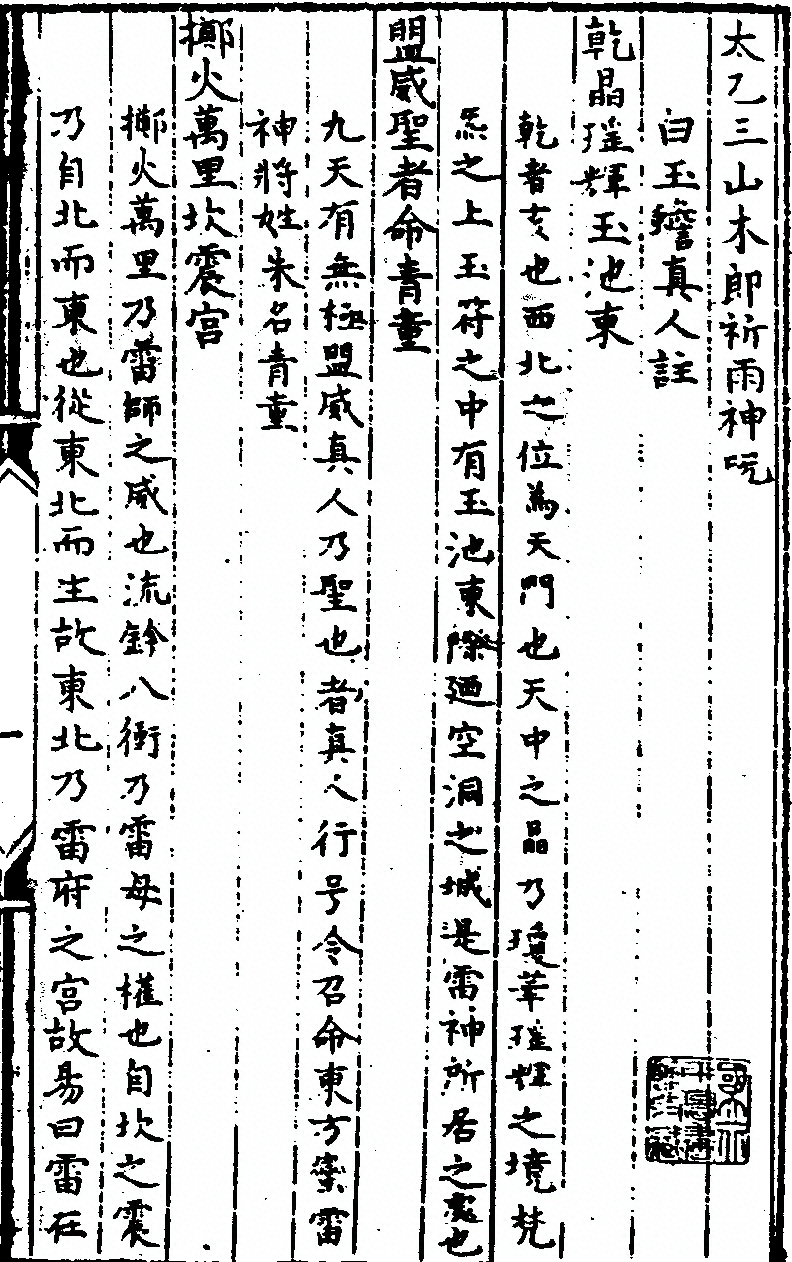 太乙三山木郎祈雨神呪
白玉蟾真人註
乾晶瑤輝玉池東
乾者亥也西北之位為天門也天中之晶乃瓊華瑤輝之境梵
炁之上玉符之中有玉池東際廼空洞之城是雷神所居之處也
盟威聖者命青童
九天有無極盟威真人乃聖也者真人行号令召命東方蠻雷
神將姓朱名青童
擲火萬里坎震宫
擲火萬里乃雷師之威也流鈴八衝乃雷母之權也自坎之震
乃自北而東也從東北而生故東北乃雷府之宫故易曰雷在